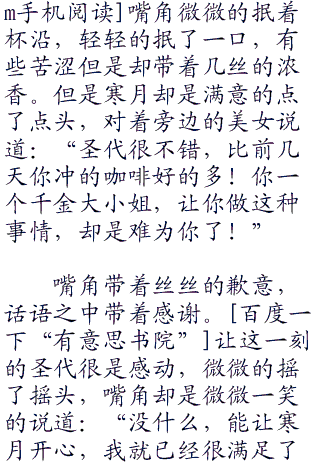 m手机阅读]嘴角微微的抿着
杯沿，轻轻的抿了一口，有
些苦涩但是却带着几丝的浓
香。但是寒月却是满意的点
了点头，对着旁边的美女说
道：“圣代很不错，比前几
天你冲的咖啡好的多！你一
个千金大小姐，让你做这种
事情，却是难为你了！”
嘴角带着丝丝的歉意，
话语之中带着感谢。[百度一
下“有意思书院”]让这一刻
的圣代很是感动，微微的摇
了摇头，嘴角却是微微一笑
的说道：“没什么，能让寒
月开心，我就已经很满足了